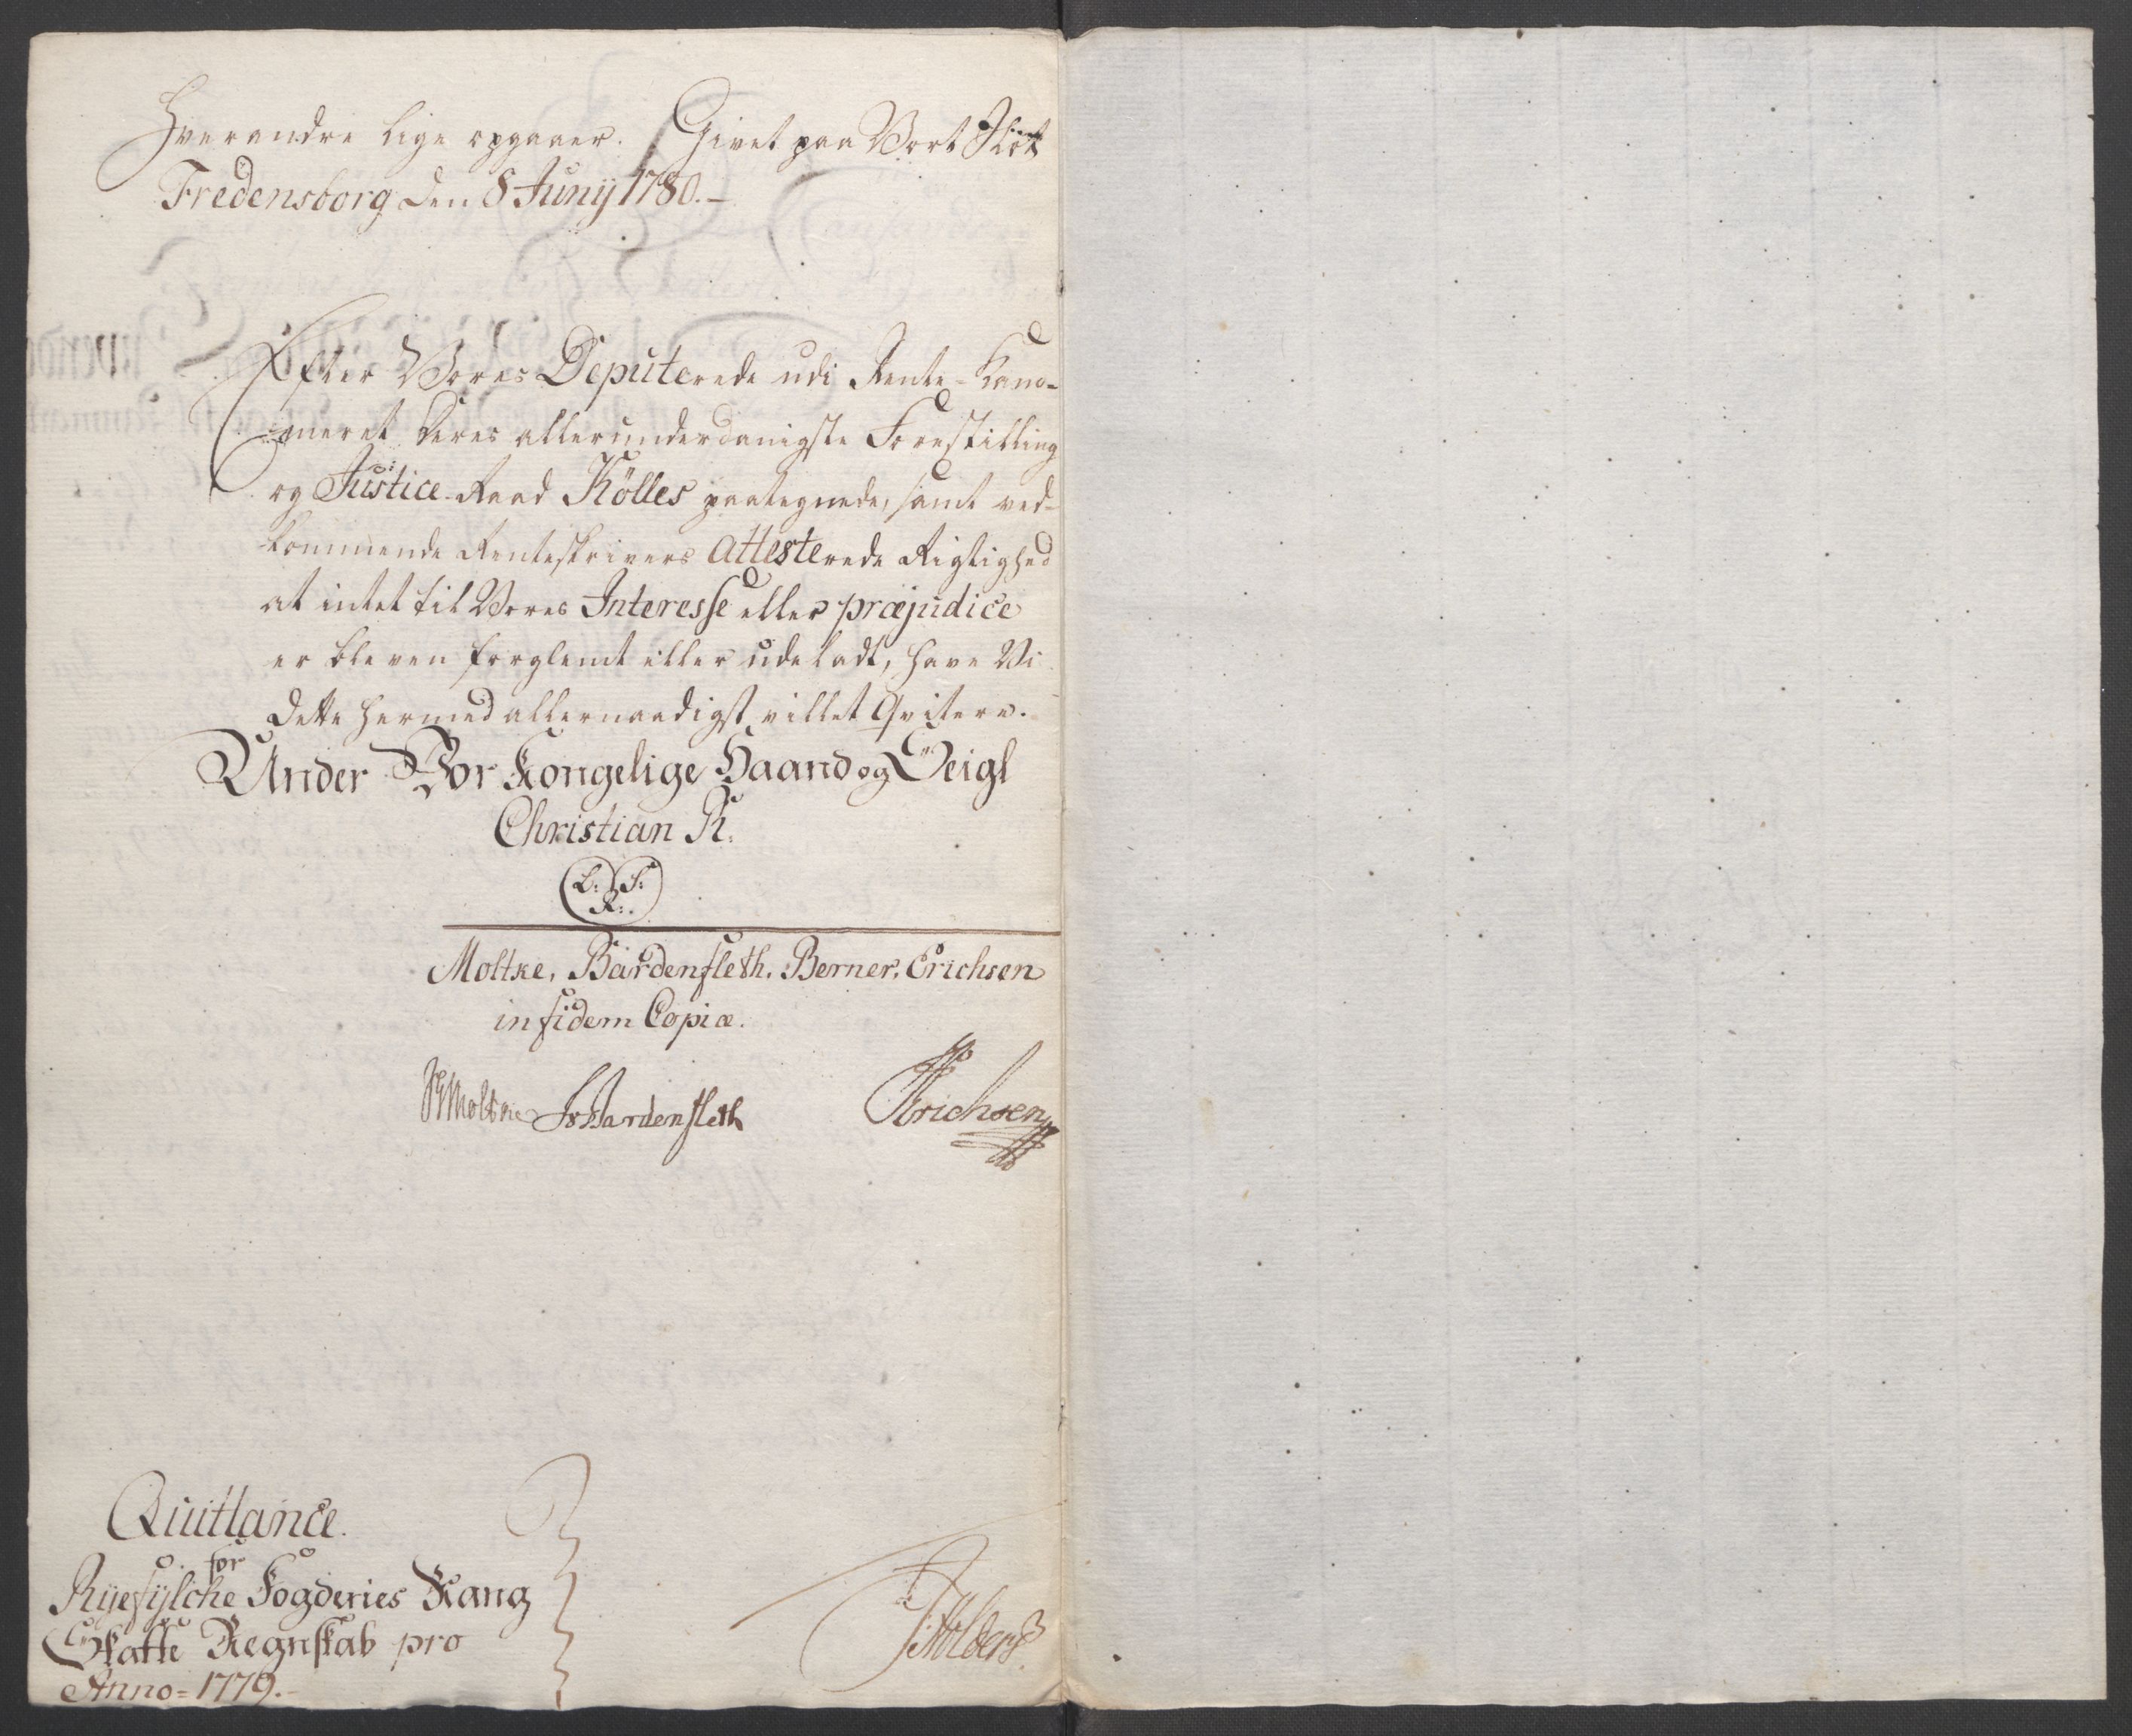 Hverandre lige opgaaer. Givet paa Vort Slot
Fredensborg den 8 Junij 1780.-
Efter Vores Deputerede udi Rente-Kam-
meret deres allerunderdanigste Forestilling
og Justice-Raad Kölles paategnede, samt ved-
kommende Renteskrivers attesterede Rigtighed
at intet til Vores Interesse eller præjudice
er bleven forglemt eller udeladt, have Vi
dette hermed allernaadigst villet Qvitere.
Under Vor Kongelige Haand og Seigl
Christian R.
L: S:
R:.
Moltke, Bardenfleth, Berner, Erichsen
in fidem Copiæ.
Moltke Bardenfleth Erichsen
Quittance.
for
Ryefylcke Fogderies Rang
Skatte Regnskab pro
Anno=1779.-